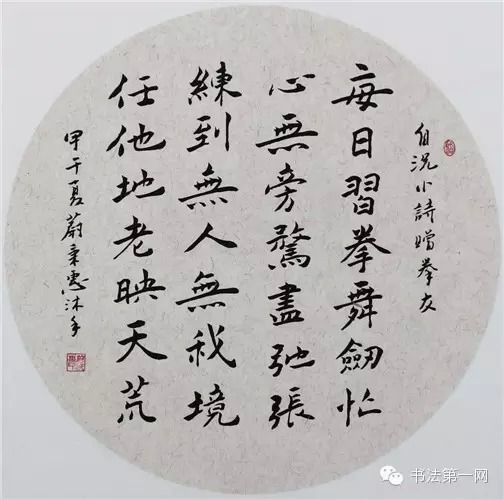 自況小詩贈拳友
每日習拳舞劍忙
心無旁騖盡弛張
練到無人無我境
任他地老映天荒
甲午夏蔚秉沐手
书法第一网